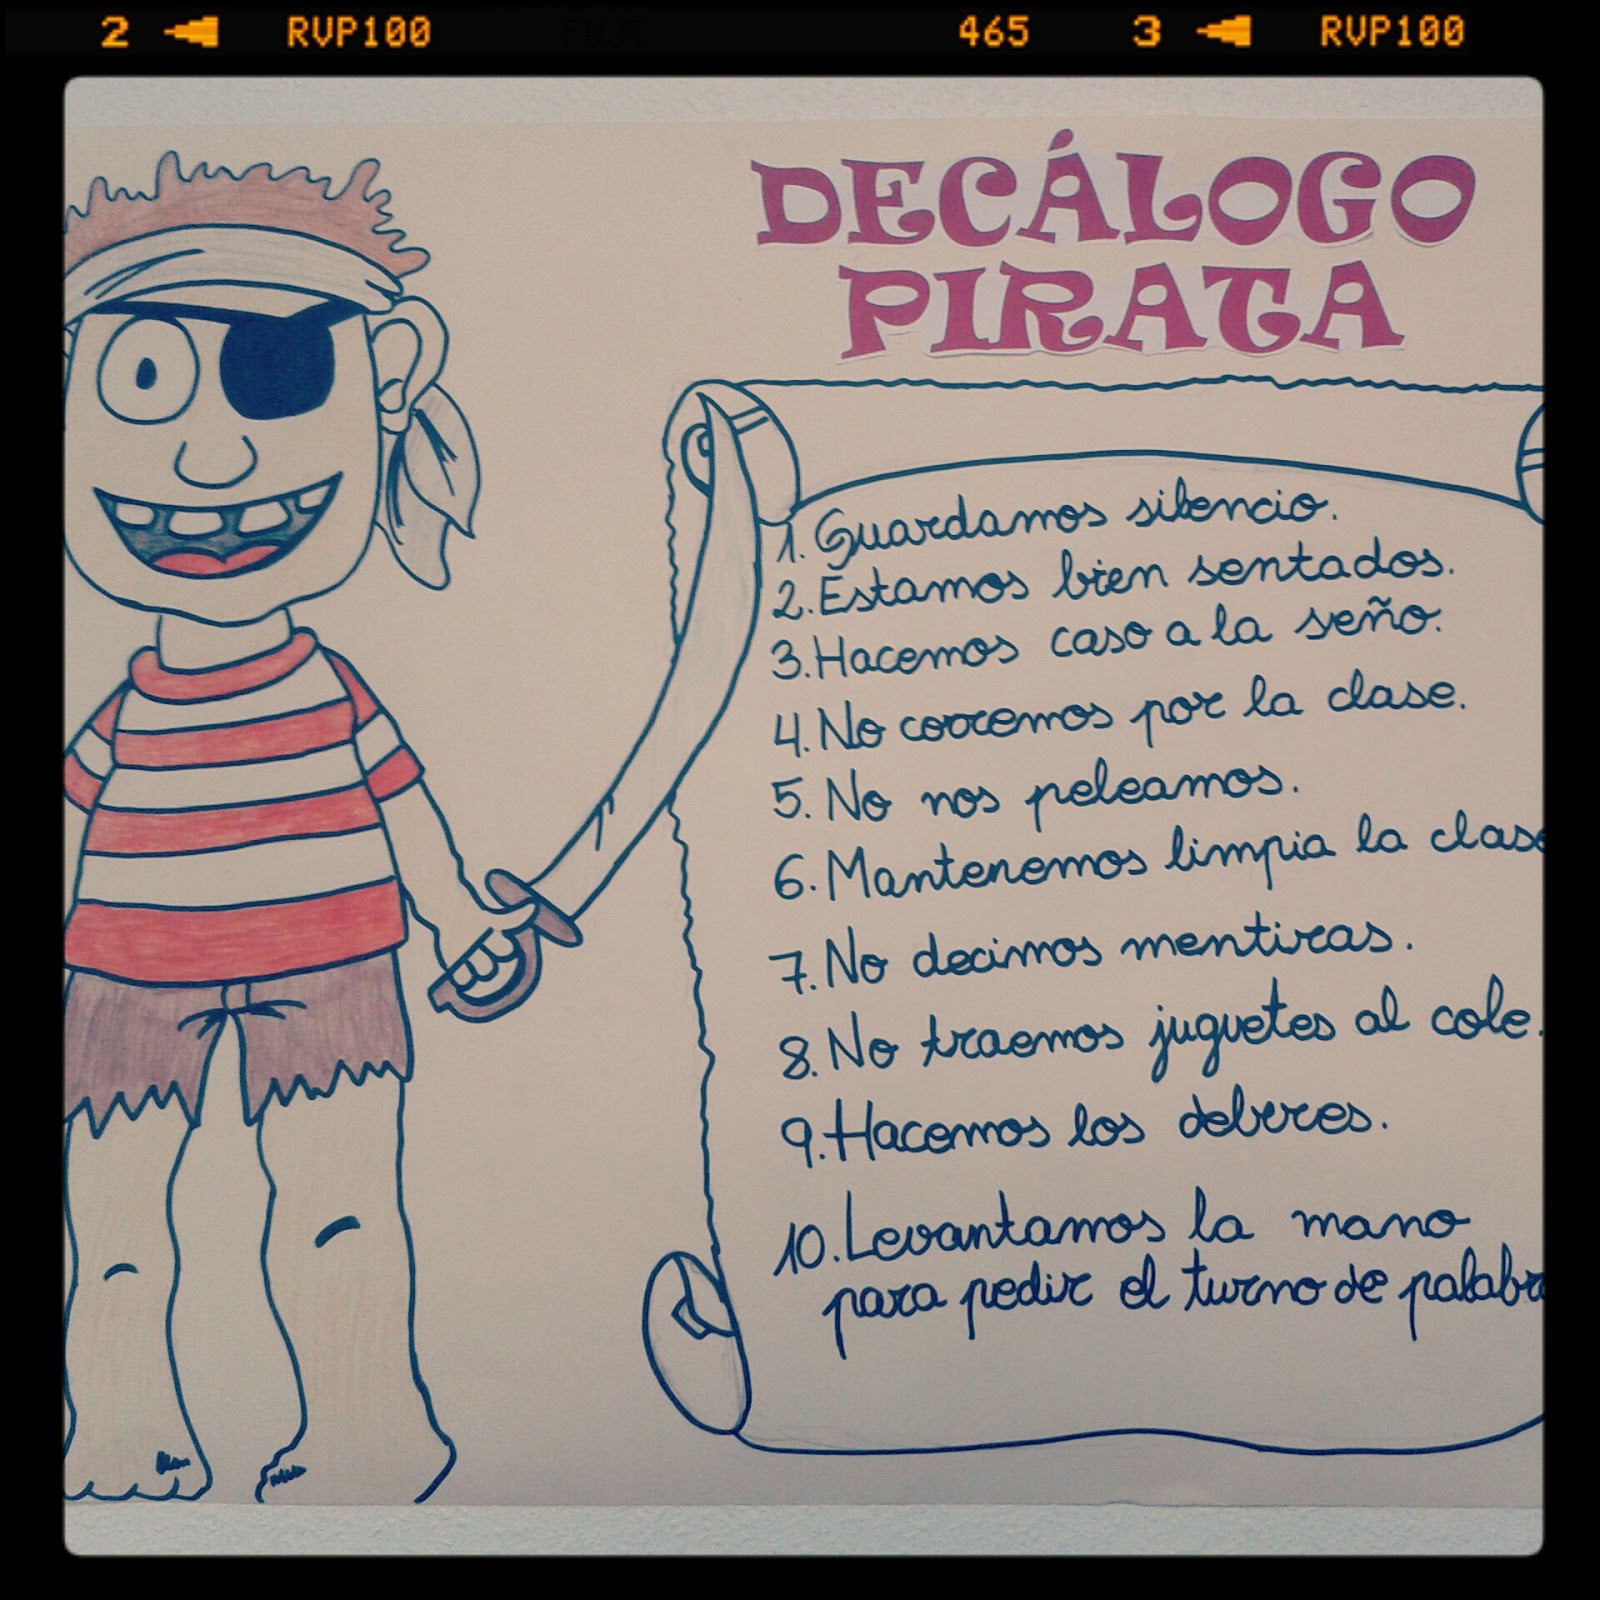 2 RVP100 FUJI 465 3 RVP100
DECÁLOGO
PIRATA
1. Guardamos silencio.
2. Estamos bien sentados.
3. Hacemos caso a la seño.
4. No corremos por la clase.
5. No nos peleamos.
6. Mantenemos limpia la clase
7. No decimos mentiras.
8. No traemos juguetes al cole.
9. Hacemos los deberes.
10. Levantamos la mano
para pedir el turno de palabra